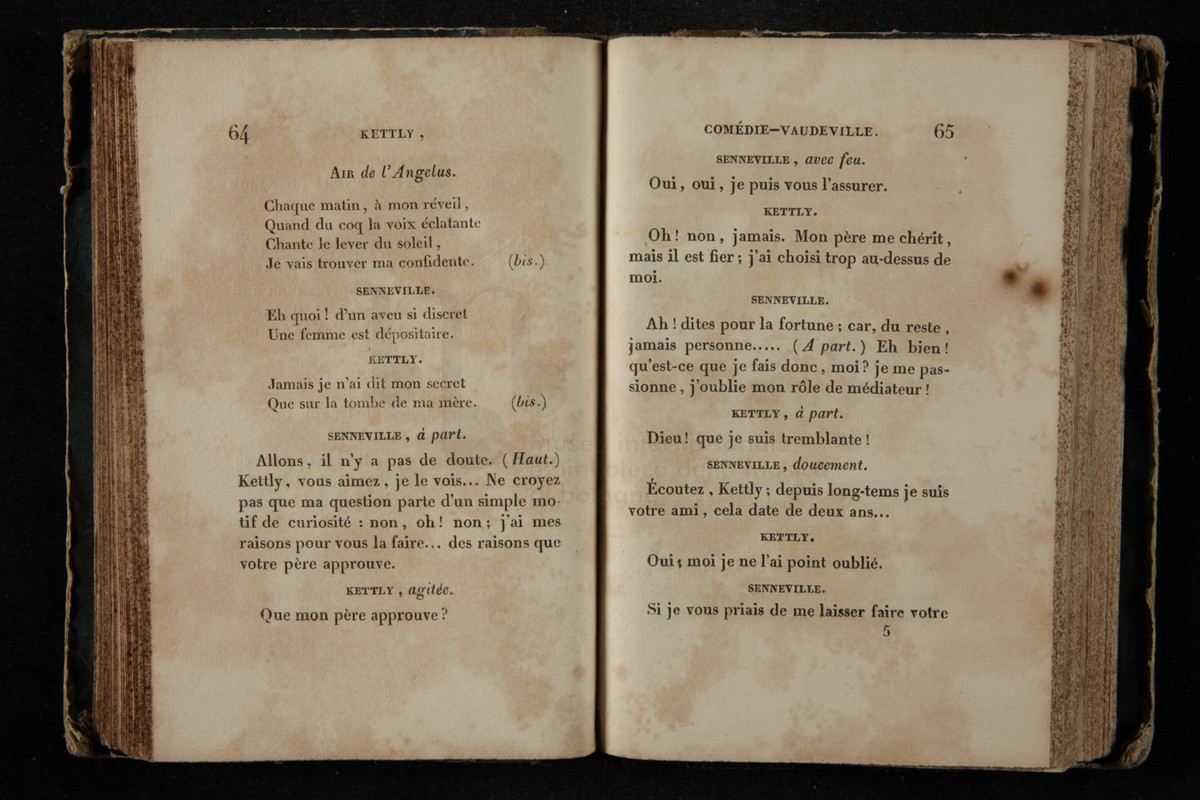 64 KETTLY ,
AIR de l'Angelus.
Chaque matin , à mon réveil ,
Quand du coq la voix éclatante
Chante le lever du soleil ,
Je vais trouver ma confidente. (bis.)
SENNEVILLE.
Eh quoi ! d'un aveu si discret
Une femme est dépositaire.
KETTLY.
Jamais je n'ai dit mon secret
Que sur la tombe de ma mère. (bis.)
SENNEVILLE , à part.
Allons, il n'y a pas de doute. ( Haut.)
Kettly, vous aimez, je le vois... Ne croyez
pas que ma question parte d'un simple mo-
tif de curiosité : non , oh ! non ; j'ai mes
raisons pour vous la faire... des raisons que
votre père approuve.
KETTLY , agitée.
Que mon père approuve ?
COMÉDIE-VAUDEVILLE. 65
SENNEVILLE , avec feu.
Oui , oui , je puis vous l'assurer.
KETTLY.
Oh ! non , jamais. Mon père me chérit ,
mais il est fier ; j'ai choisi trop au-dessus de
moi.
SENNEVILLE.
Ah ! dites pour la fortune ; car, du reste ,
jamais personne..... ( A part. ) Eh bien !
qu'est-ce que je fais donc , moi ? je me pas-
sionne , j'oublie mon rôle de médiateur !
KETTLY , à part.
Dieu ! que je suis tremblante !
SENNEVILLE , doucement.
Écoutez , Kettly ; depuis long-tems je suis
votre ami , cela date de deux ans...
KETTLY.
Oui ; moi je ne l'ai point oublié.
SENNEVILLE.
Si je vous priais de me laisser faire votre
5